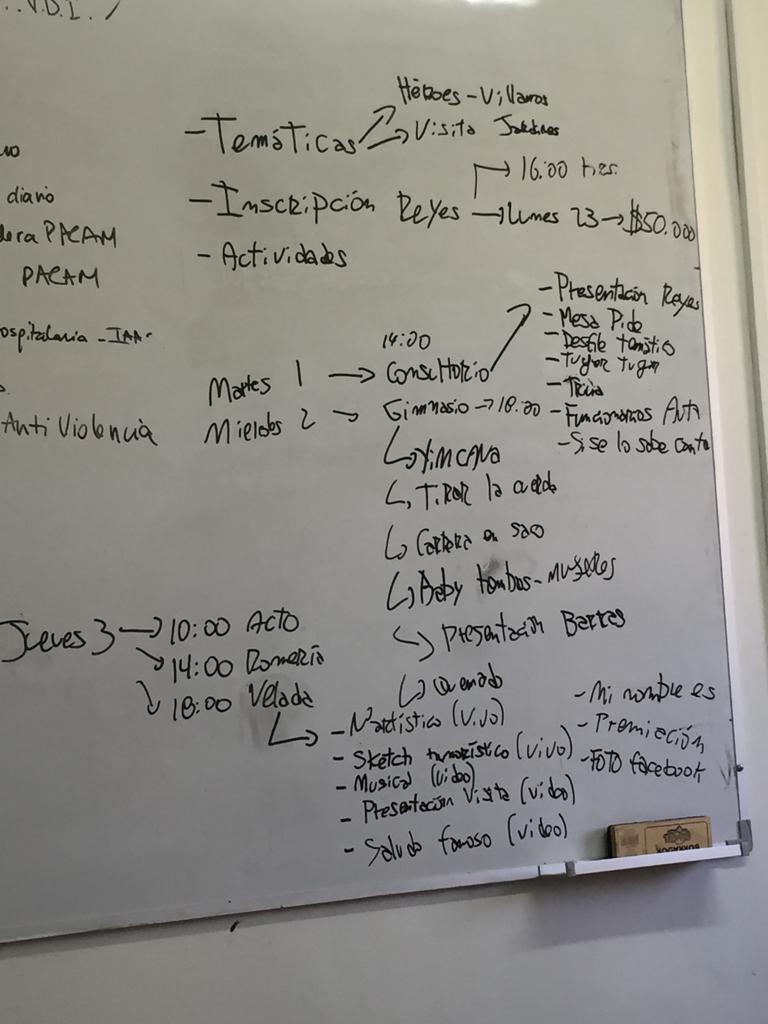 V.D.I.
- Temáticas
Héroes - Villanos
Visita Jardines
diario
PACAM
PACAM
- Inscripción Reyes → Lunes 23 → $50.000
→ 16:00 hrs.
- Actividades
ospitalaria - IAA
Anti Violencia
Martes 1 → 14:00 Consultorio
- Presentación Reyes
- Mesa Pide
- Desfile temático
- Tugar tugar
- Trivia
- Funcionarios
- Si se lo sabe canta
Mieldes 2 → Gimnasio → 18:00
Yimcana
Tirar la cuerda
Carrera en saco
Baby tombos - Mujeres
Presentación Barras
Quemado
Jueves 3 → 10:00 Acto
14:00 Romería
18:00 Velada
- N° artístico (vivo)
- Sketch humorístico (vivo)
- Musical (video)
- Presentación Visita (video)
- Saludo famoso (video)
- Mi nombre es
- Premiación
- Foto facebook